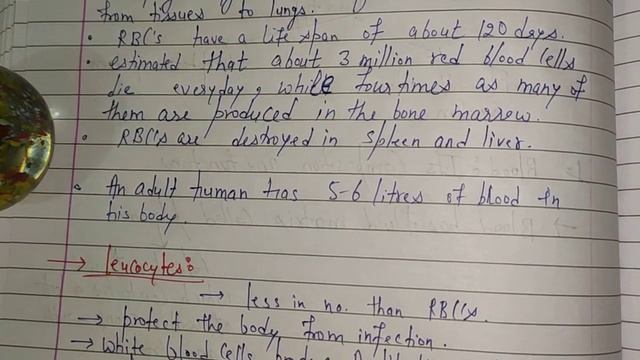 from tissues to lungs.
• RBC's have a life span of about 120 days.
• estimated that about 3 million red blood cells
die everyday, while four times as many of
them are produced in the bone marrow.
• RBC's are destroyed in spleen and liver.
• An adult human has 5-6 litres of blood in
his body.
→ leucocytes:
→ less in no. than RBC's.
→ protect the body from infection.
→ White blood cells